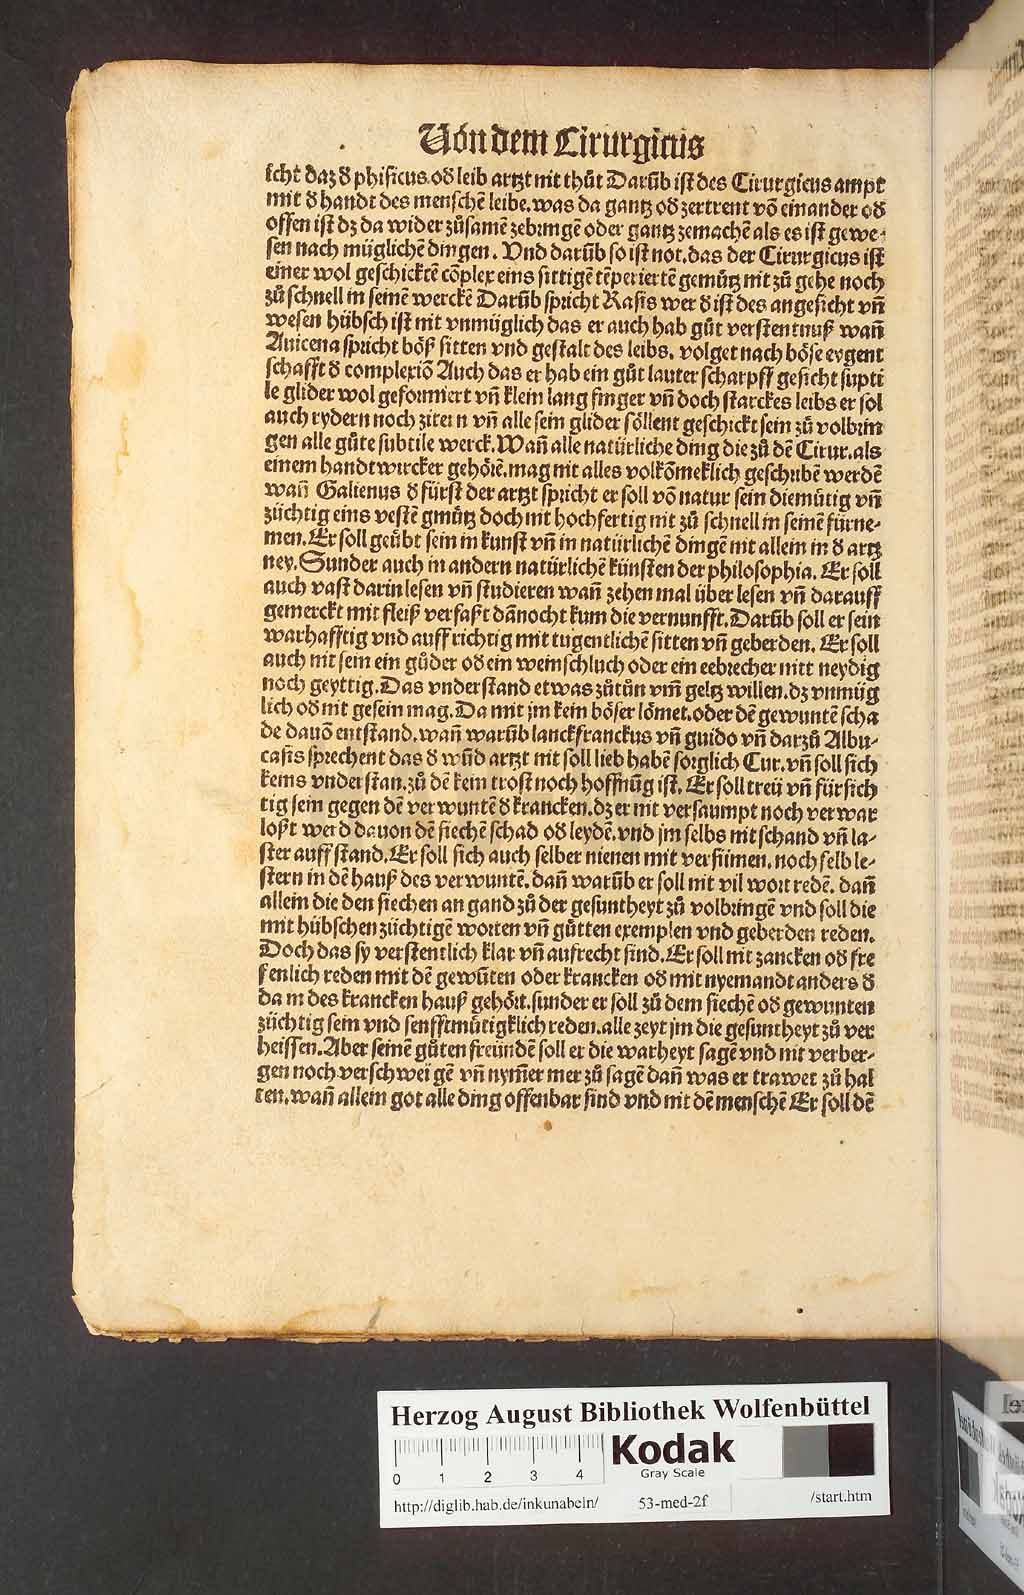 Von dem Cirurgicus
icht daz d̕ phisicus. od̕ leib artzt nit thůt Darūb ist des Cirurgicus ampt
mit d̕ handt des menschē leibe. was da gantz od̕ zertrent vō einander od̕
offen ist dz da wider zůsamē zebringē oder gantz zemachē als es ist gewe-
sen nach müglichē dingen. Vnd darūb so ist not. das der Cirurgicus ist
einer wol geschicktē cōplex eins sittigē tēperiertē gemůtz nit zů gehe noch
zů schnell in seinē werckē Darūb spricht Rasis wer d̕ ist des angesicht vn̄
wesen hübsch ist nit vnmüglich das er auch hab gůt verstentnuß wan̄
Auicena spricht böß sitten vnd gestalt des leibs. volget nach böse eygent
schafft d̕ complexiō Auch das er hab ein gůt lauter scharpff gesicht supti
le glider wol geformiert vn̄ klein lang finger vn̄ doch starckes leibs er sol
auch rydern noch zitern vn̄ alle sein glider söllent geschickt sein zů volbrin
gen alle gůte subtile werck. Wan̄ alle natürliche ding die zů dē Cirur. als
einem handtwircker gehörē. mag nit alles volkōmeklich geschribē werdē
wan̄ Galienus d̕ fürst der artzt spricht er soll vō natur sein diemůtig vn̄
züchtig eins vestē gmůtz doch nit hochfertig nit zů schnell in seinē fürne-
men. Er soll geübt sein in kunst vn̄ in natürlichē dingē nit allein in d̕ artz
ney. Sunder auch in andern natürlichē künsten der philosophia. Er soll
auch vast darin lesen vn̄ studieren wan̄ zehen mal über lesen vn̄ darauff
gemerckt mit fleiß verfaßt dānocht kum die vernunfft. Darūb soll er sein
warhafftig vnd auffrichtig mit tugentlichē sitten vn̄ geberden. Er soll
auch nit sein ein güder od̕ ein weinschluch oder ein eebrecher nitt neydig
noch geyttig. Das vnderstand etwas zůtůn vm̄ geltz willen. dz vnmüg
lich od̕ nit gesein mag. Da mit jm kein böser lömet. oder dē gewuntē scha
de dauō entstand. wan̄ warūb lanckfranckus vn̄ guido vn̄ darzů Albu-
casis sprechent das d̕ wūd artzt nit soll lieb habē sorglich Cur. vn̄ soll sich
keins vnderstan. zů dē kein trost noch hoffnūg ist. Er soll treü vn̄ fürsich
tig sein gegen dē verwuntē d̕ krancken. dz er nit versaumpt noch verwar
loßt werd dauon dē siechē schad od̕ leydē. vnd jm selbs nit schand vn̄ la-
ster auff stand. Er soll sich auch selber nienen mit versümen. noch selb le-
stern in dē hauß des verwuntē. dan̄ warūb er soll nit vil wort redē. dan̄
allein die den siechen an gand zů der gesuntheyt zů volbringē vnd soll die
mit hübschen züchtigē worten vn̄ gůtten exemplen vnd geberden reden.
Doch das sy verstentlich klar vn̄ aufrecht sind. Er soll nit zancken od̕ fre
fenlich reden mit dē gewūten oder krancken od̕ mit nyemandt anders d̕
da in des krancken hauß gehört. sunder er soll zů dem siechē od̕ gewunten
züchtig sein vnd senfftmůtigklich reden. alle zeyt jm die gesuntheyt zů ver
heissen. Aber seinē gůten freündē soll er die warheyt sagē vnd nit verber-
gen noch verschweigē vn̄ nym̄er mer zů sagē dan̄ was er trawet zů hal
ten. wan̄ allein got alle ding offenbar sind vnd nit dē menschē Er soll dē
Herzog August Bibliothek Wolfenbüttel
0 1 2 3 4
Kodak
Gray Scale
http://diglib.hab.de/inkunabeln/ 53-med-2f /start.htm